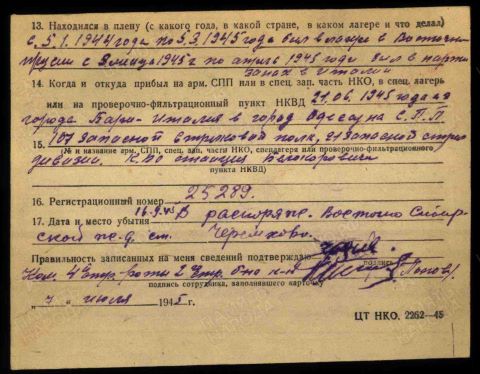 13. Находился в плену (с какого года, в какой стране, в каком лагере и что делал)
с 5.1.1944 года по 5.3.1945 года был в лагере в Восточн
Прусии с 3 марта 1945 г по апрель 1945 года был в парти
занах в Италии
14. Когда и откуда прибыл на арм. СПП или в спец. зап. часть НКО, в спец. лагерь
или на проверочно-фильтрационный пункт НКВД 21.06.1945 года из
города Бари-Италия в город Одесса на С.П.П.
15. 107 Запасной стрелковой полк, 21 Запасной стрел
(№ и название арм. СПП, спец. зап. части НКО, спецлагеря или проверочно-фильтрационного
дивизии. станция
пункта НКВД)
16. Регистрационный номер 25289.
17. Дата и место убытия 16.9.45 В распоряже. Восточно Сибир
ской ж.д. ст. Черемхово.
Правильность записанных на меня сведений подтверждаю
подпись
Ком. 4 стр. роты 2 стр. б-на /Попов/
подпись сотрудника, заполнявшего карточку
„7 " июля 1945 г.
ЦТ НКО. 2262—45